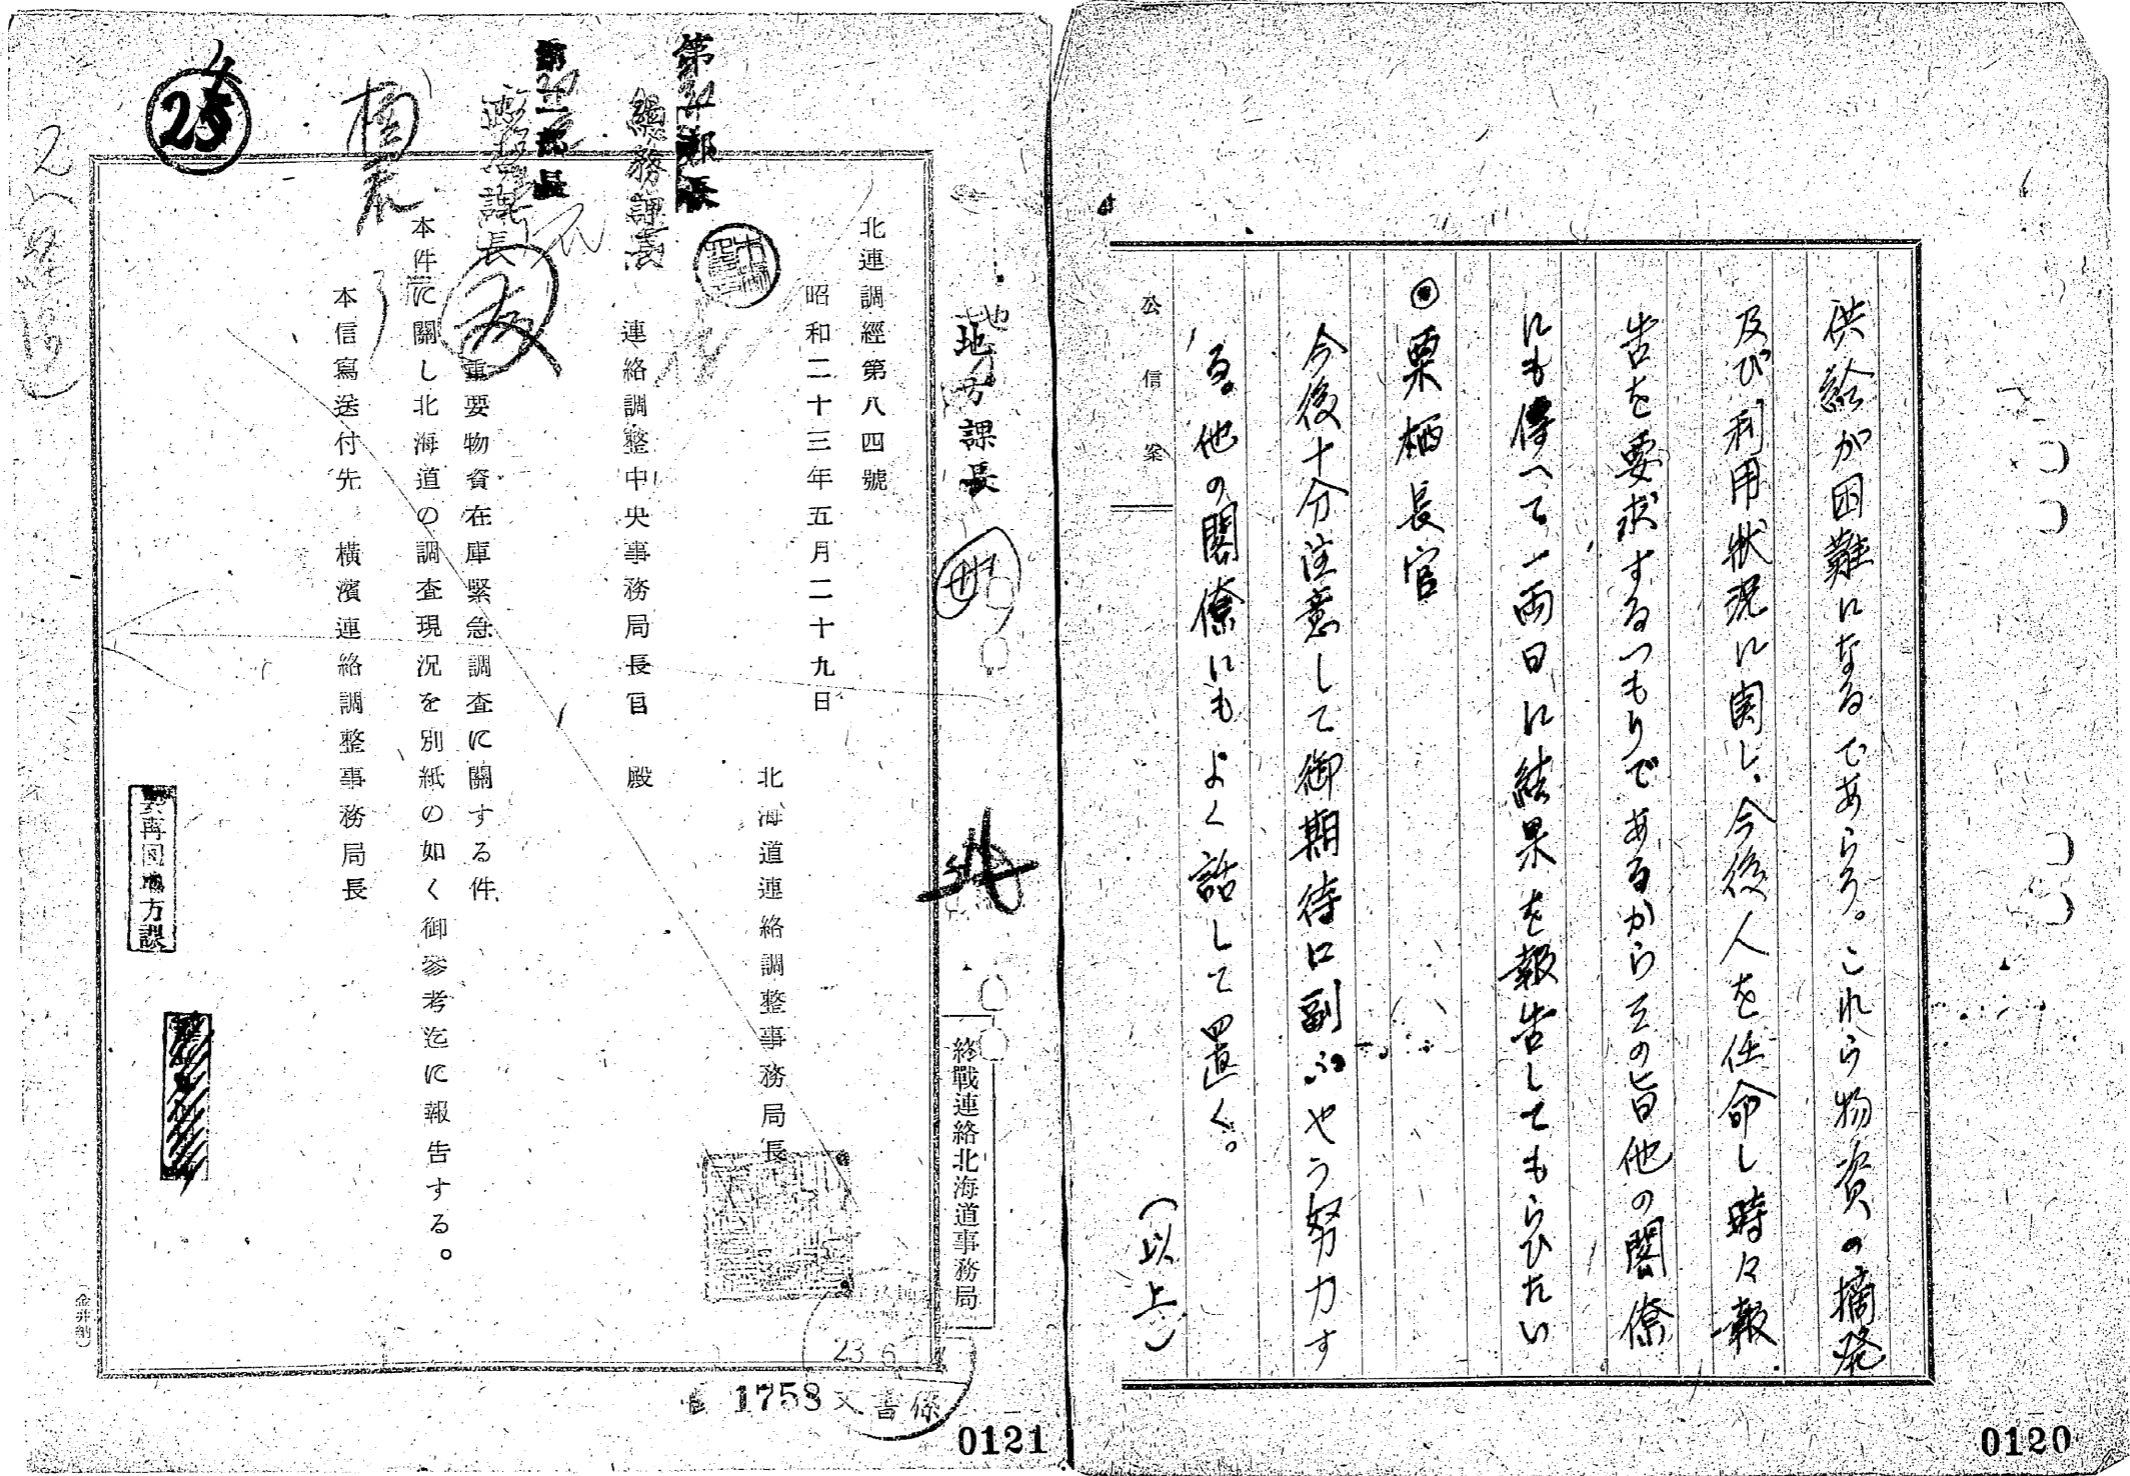 供給が困難になるであらう。これら物資の摘発
及び利用状況に関し、今後人を任命し時々報
告を要求するつもりであるからその旨他の閣僚
にも傳へて一両日に結果を報告してもらひたい
栗栖長官
今後十分注意して御期待に副ふやう努力す
る。他の閣僚にもよく話して置く。
(以上)
公信案
0120
地方課長
終戰連絡北海道事務局
北連調經第八四號
昭和二十三年五月二十九日
北海道連絡調整事務局長
第
部長
總務課長
連絡調整中央事務局長官 殿
課長
重要物資在庫緊急調査に關する件
本件に關し北海道の調査現況を別紙の如く御參考迄に報告する。
本信寫送付先 橫濱連絡調整事務局長
地方課
25
4
23 6
1758
文書係
0121